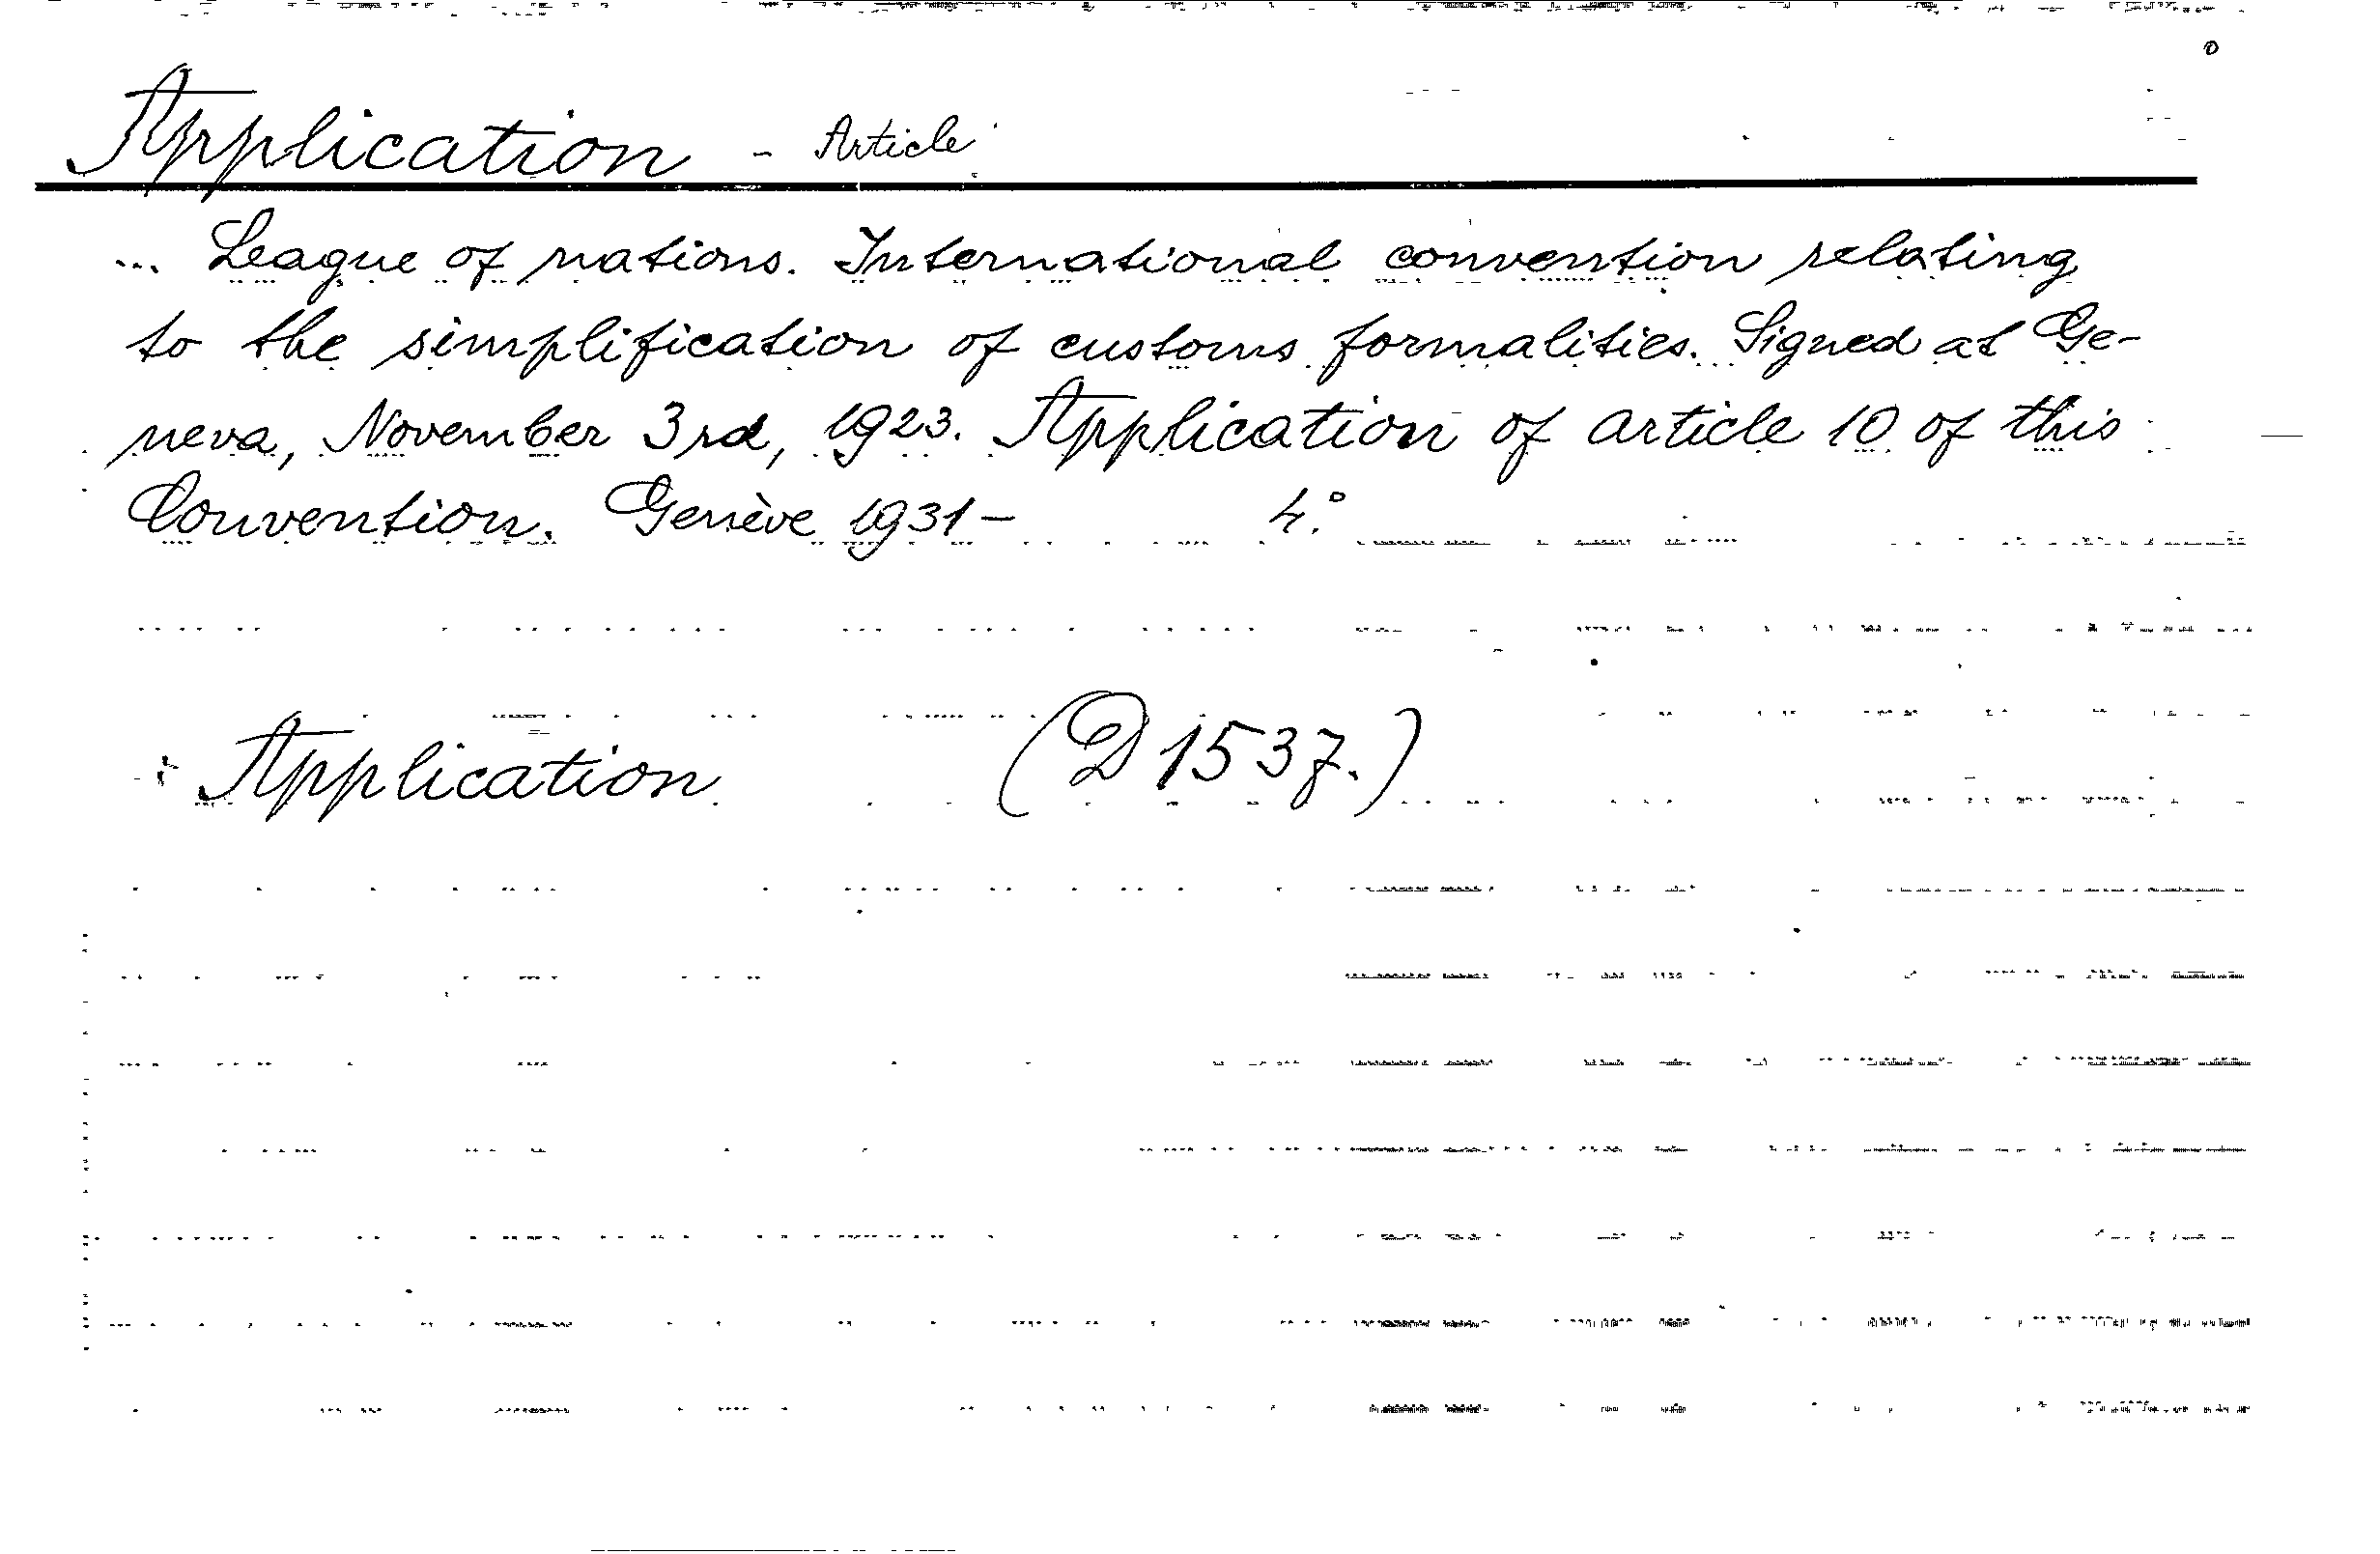 Application - Article
... League of nations. International convention relating
to the simplification of customs formalities. Signed at Ge-
neva, November 3rd, 1923. Application of article 10 of this
Convention. Genève 1931- 4:o
÷ Application (D 1537.)